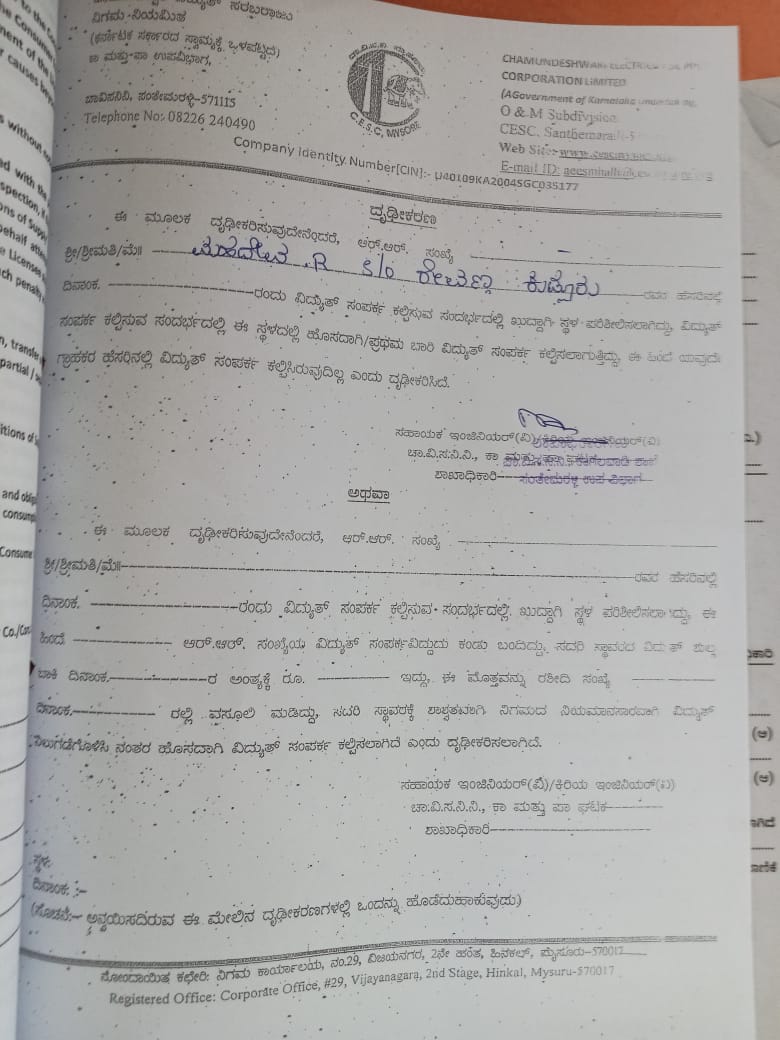 to the Co
the Consume
ment of the
r causes bey
s without
ed with the
spection, i
ons of supp
behalf att
e Licensee
ch penalt
n, transfe
partial /
itions of
and oblig
consump
Consume
Co./Con
ವಿದ್ಯುತ್ ಸರಬರಾಜು
ನಿಗಮ ನಿಯಮಿತ
(ಕರ್ನಾಟಕ ಸರ್ಕಾರದ ಸ್ವಾಮ್ಯಕ್ಕೆ ಒಳಪಟ್ಟಿದೆ)
ಕಾ ಮತ್ತು ಪಾ ಉಪವಿಭಾಗ,
ಚಾವಿಸನಿನಿ, ಸಂತೇಮರಳ್ಳಿ-571115
Telephone No: 08226 240490
C.E.S.C, MYSORE
CHAMUNDESHWARI ELECTRICITY
CORPORATION LIMITED
(A Government of Karnataka undertaking,
O & M Subdivision
CESC, Santhemaralli-5
Web Site:-www.
E-mail ID:
Company Identity Number[CIN]:- U40109KA2004SGC035177
ದೃಢೀಕರಣ
ಈ ಮೂಲಕ ದೃಢೀಕರಿಸುವುದೇನೆಂದರೆ, ಆರ್.ಆರ್. ಸಂಖ್ಯೆ -
ಶ್ರೀ/ಶ್ರೀಮತಿ/ಮೆ॥ ಮಹದೇವ .R S/o ರೇವಣ್ಣ ಕುದ್ಲೂರು ರವರ ಹೆಸರಿನಲ್ಲಿ
ದಿನಾಂಕ. ರಂದು ವಿದ್ಯುತ್ ಸಂಪರ್ಕ ಕಲ್ಪಿಸುವ ಸಂದರ್ಭದಲ್ಲಿ ಖುದ್ದಾಗಿ ಸ್ಥಳ ಪರಿಶೀಲಿಸಲಾಗಿದ್ದು, ವಿದ್ಯುತ್
ಸಂಪರ್ಕ ಕಲ್ಪಿಸುವ ಸಂದರ್ಭದಲ್ಲಿ ಈ ಸ್ಥಳದಲ್ಲಿ ಹೊಸದಾಗಿ/ಪ್ರಥಮ ಬಾರಿ ವಿದ್ಯುತ್ ಸಂಪರ್ಕ ಕಲ್ಪಿಸಲಾಗುತ್ತಿದ್ದು, ಈ ಹಿಂದೆ ಯಾವುದೇ
ಗ್ರಾಹಕರ ಹೆಸರಿನಲ್ಲಿ ವಿದ್ಯುತ್ ಸಂಪರ್ಕ ಕಲ್ಪಿಸಿರುವುದಿಲ್ಲ ಎಂದು ದೃಢೀಕರಿಸಿದೆ.
ಸಹಾಯಕ ಇಂಜಿನಿಯರ್(ವಿ)/ಕಿರಿಯ ಇಂಜಿನಿಯರ್(ವಿ)
ಚಾ.ವಿ.ಸ.ನಿ.ನಿ., ಕಾ ಮತ್ತು ಪಾ
ಶಾಖಾಧಿಕಾರಿ ಸಂತೇಮರಳ್ಳಿ ಉಪ ವಿಭಾಗ
ಅಥವಾ
ಈ ಮೂಲಕ ದೃಢೀಕರಿಸುವುದೇನೆಂದರೆ, ಆರ್.ಆರ್. ಸಂಖ್ಯೆ
ಶ್ರೀ/ಶ್ರೀಮತಿ/ಮೆ॥ ರವರ ಹೆಸರಿನಲ್ಲಿ
ದಿನಾಂಕ. ರಂದು ವಿದ್ಯುತ್ ಸಂಪರ್ಕ ಕಲ್ಪಿಸುವ ಸಂದರ್ಭದಲ್ಲಿ, ಖುದ್ದಾಗಿ ಸ್ಥಳ ಪರಿಶೀಲಿಸಲಾಗಿದ್ದು, ಈ
ಹಿಂದೆ ಆರ್.ಆರ್. ಸಂಖ್ಯೆಯ ವಿದ್ಯುತ್ ಸಂಪರ್ಕವಿದ್ದುದು ಕಂಡು ಬಂದಿದ್ದು, ಸದರಿ ಸ್ಥಾವರದ ವಿದ್ಯುತ್ ಶುಲ್ಕ
ಬಾಕಿ ದಿನಾಂಕ. ರ ಅಂತ್ಯಕ್ಕೆ ರೂ. ಇದ್ದು, ಈ ಮೊತ್ತವನ್ನು ರಶೀದಿ ಸಂಖ್ಯೆ
ದಿನಾಂಕ. ರಲ್ಲಿ ವಸೂಲಿ ಮಾಡಿದ್ದು, ಸದರಿ ಸ್ಥಾವರಕ್ಕೆ ಶಾಶ್ವತವಾಗಿ ನಿಗಮದ ನಿಯಮಾನುಸಾರವಾಗಿ ವಿದ್ಯುತ್
ನಿಲುಗಡೆಗೊಳಿಸಿ ನಂತರ ಹೊಸದಾಗಿ ವಿದ್ಯುತ್ ಸಂಪರ್ಕ ಕಲ್ಪಿಸಲಾಗಿದೆ ಎಂದು ದೃಢೀಕರಿಸಲಾಗಿದೆ.
ಸಹಾಯಕ ಇಂಜಿನಿಯರ್(ವಿ)/ಕಿರಿಯ ಇಂಜಿನಿಯರ್(ವಿ)
ಚಾ.ವಿ.ಸ.ನಿ.ನಿ., ಕಾ ಮತ್ತು ಪಾ ಘಟಕ
ಶಾಖಾಧಿಕಾರಿ
ಸ್ಥಳ:
ದಿನಾಂಕ: :-
(ಸೂಚನೆ:- ಅನ್ವಯಿಸದಿರುವ ಈ ಮೇಲಿನ ದೃಢೀಕರಣಗಳಲ್ಲಿ ಒಂದನ್ನು ಹೊಡೆದುಹಾಕುವುದು.)
ನೋಂದಾಯಿತ ಕಛೇರಿ: ನಿಗಮ ಕಾರ್ಯಾಲಯ, ನಂ.29, ವಿಜಯನಗರ, 2ನೇ ಹಂತ, ಹಿನಕಲ್, ಮೈಸೂರು-570017
Registered Office: Corporate Office, #29, Vijayanagara, 2nd Stage, Hinkal, Mysuru-570017
(ಅ)
(ಆ)